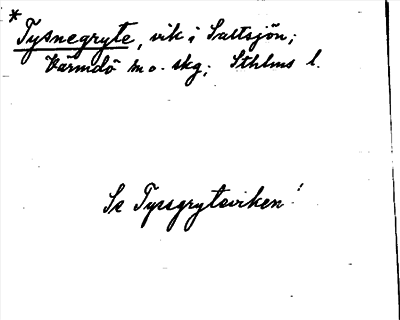 *
Tysnegryte, vik i Saltsjön;
Värmdö m o. skg; Sthlms l.
Se Tyrsgryteviken!